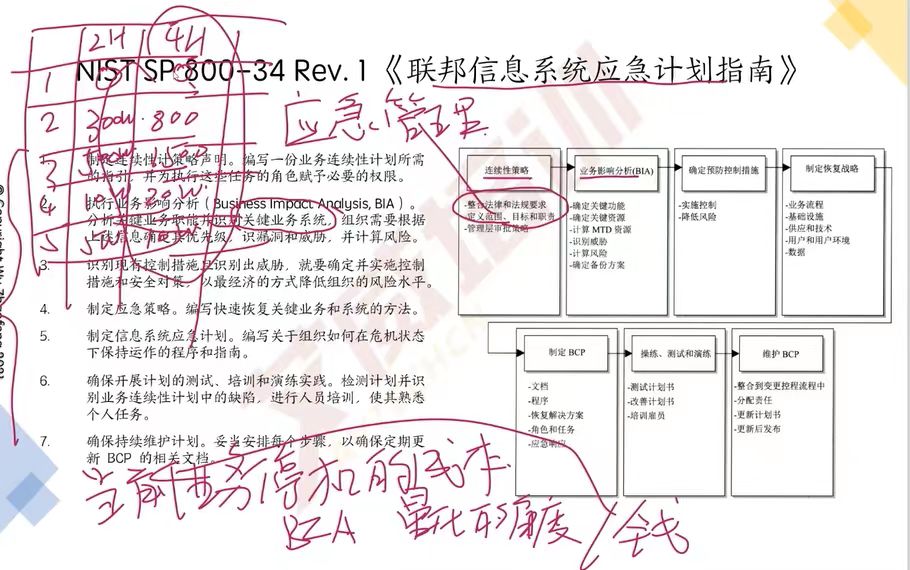 2H 4H
NIST SP 800-34 Rev. 1《联邦信息系统应急计划指南》
1 0
2 300w 800
应急管理
3 1500
4 10W 20W
5 5W
制定连续性计策略声明。编写一份业务连续性计划所需
的指引，并为执行这些任务的角色赋予必要的权限。
执行业务影响分析（Business Impact Analysis, BIA）。
分析关键业务职能并识别关键业务系统，组织需要根据
上述信息确定其优先级，识漏洞和威胁，并计算风险。
3. 识别现有控制措施且识别出威胁，就要确定并实施控制
措施和安全对策，以最经济的方式降低组织的风险水平。
4. 制定应急策略。编写快速恢复关键业务和系统的方法。
5. 制定信息系统应急计划。编写关于组织如何在危机状态
下保持运作的程序和指南。
6. 确保开展计划的测试、培训和演练实践。检测计划并识
别业务连续性计划中的缺陷，进行人员培训，使其熟悉
个人任务。
7. 确保持续维护计划。妥当安排每个步骤，以确保定期更
新 BCP 的相关文档。
连续性策略
-整合法律和法规要求
-定义范围、目标和职责
-管理层审批策略
业务影响分析(BIA)
-确定关键功能
-确定关键资源
-计算 MTD 资源
-识别威胁
-计算风险
-确定备份方案
确定预防控制措施
-实施控制
-降低风险
制定恢复战略
-业务流程
-基础设施
-供应和技术
-用户和用户环境
-数据
制定 BCP
-文档
-程序
-恢复解决方案
-角色和任务
-应急响应
操练、测试和演练
-测试计划书
-改善计划书
-培训雇员
维护 BCP
-整合到变更控程流程中
-分配责任
-更新计划书
-更新后发布
当前业务停机的成本
BIA 量化的角度 / 钱